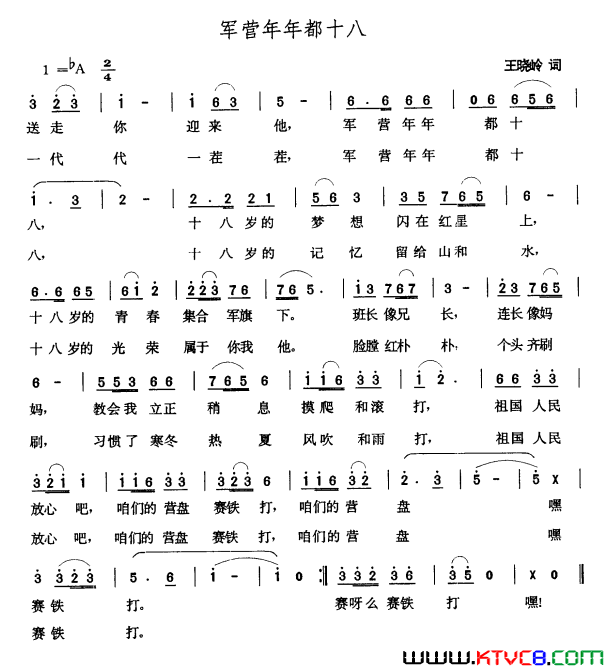 军营年年都十八
1 =♭A 2/4
王晓岭 词
3 2 3 | 1 - | 1 6 3 | 5 - | 6 . 6 6 6 | 0 6 6 5 6 |
送走 你 迎来 他, 军 营 年 年 都 十
一代 代 一茬 茬, 军 营 年 年 都 十
1 . 3 | 2 - | 2 . 2 2 1 | 5 6 3 | 3 5 7 6 5 | 6 - |
八, 十 八 岁 的 梦 想 闪 在 红 星 上,
八, 十 八 岁 的 记 忆 留 给 山 和 水,
6 . 6 6 5 | 6 1 2 | 2 2 3 7 6 | 7 6 5 . | 1 3 7 6 7 | 3 - | 2 3 7 6 5 |
十 八 岁的 青 春 集合 军旗 下。 班长 像兄 长, 连长 像妈
十 八 岁的 光 荣 属于 你我 他。 脸膛 红朴 朴, 个头 齐刷
6 - | 5 5 3 6 6 | 7 6 5 6 | 1 1 6 3 3 | 1 2 . | 6 6 3 3 |
妈, 教会我 立正 稍 息 摸爬 和滚 打, 祖国 人民
刷, 习惯了 寒冬 热 夏 风吹 和雨 打, 祖国 人民
3 2 1 1 | 1 1 6 3 3 | 3 2 3 6 | 1 1 6 3 3 | 2 . 3 | 5 - | 5 X |
放心 吧, 咱们的 营盘 赛铁 打, 咱们的 营 盘 嘿
放心 吧, 咱们的 营盘 赛铁 打, 咱们的 营 盘 嘿
3 3 2 3 | 5 . 6 | 1 - | 1 0 :‖ 3 3 2 3 6 | 3 5 0 | X 0 ‖
赛 铁 打。 赛呀么 赛铁 打 嘿!
赛 铁 打。
www.KTVC8.com